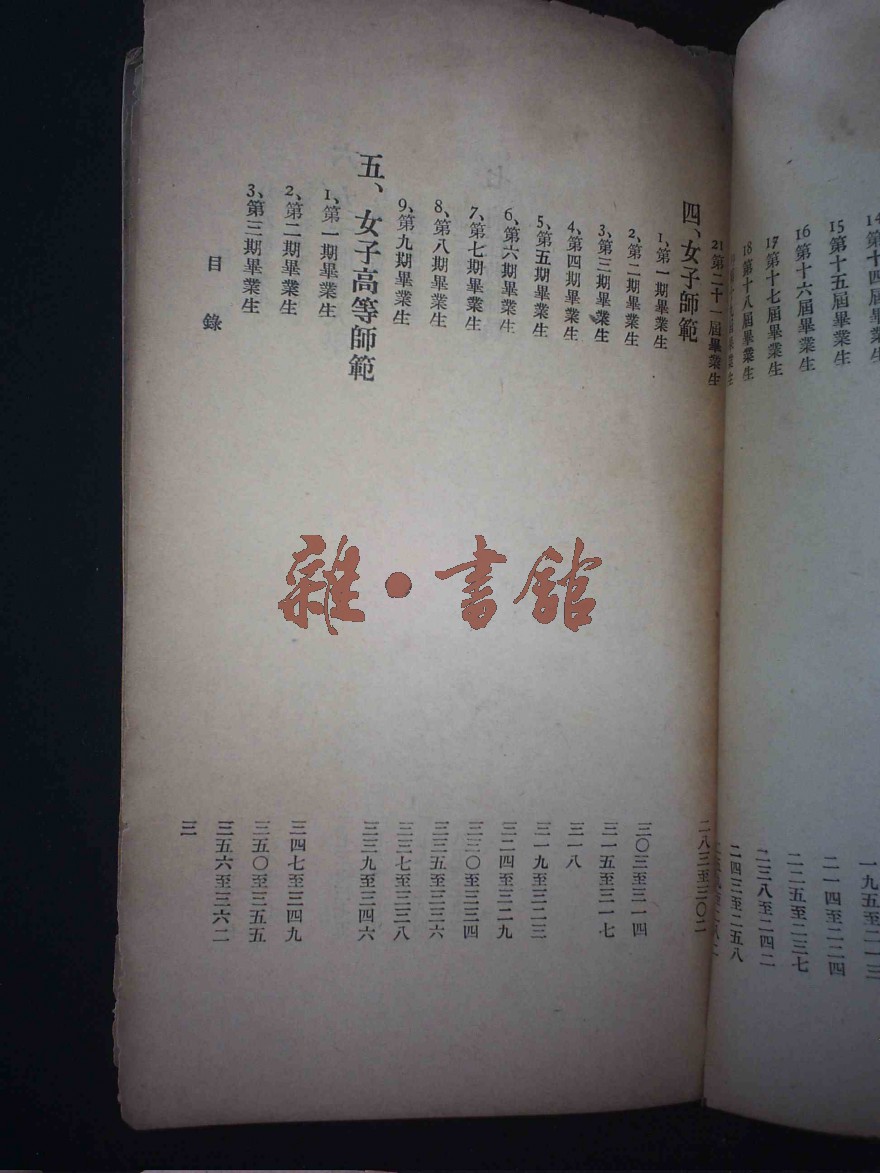 14第十四屆畢業生 一九五至二一三
15第十五屆畢業生 二一四至二二四
16第十六屆畢業生 二二五至二三七
17第十七屆畢業生 二三八至二四二
18第十八屆畢業生 二四三至二五八
21第二十一屆畢業生 二八三至三〇二
四、女子師範
1、第一期畢業生 三〇三至三一四
2、第二期畢業生 三一五至三一七
3、第三期畢業生 三一八
4、第四期畢業生 三一九至三二三
5、第五期畢業生 三二四至三二九
6、第六期畢業生 三三〇至三三四
7、第七期畢業生 三三五至三三六
8、第八期畢業生 三三七至三三八
9、第九期畢業生 三三九至三四六
五、女子高等師範
1、第一期畢業生 三四七至三四九
2、第二期畢業生 三五〇至三五五
3、第三期畢業生 三五六至三六二
目錄 三
雜·書館